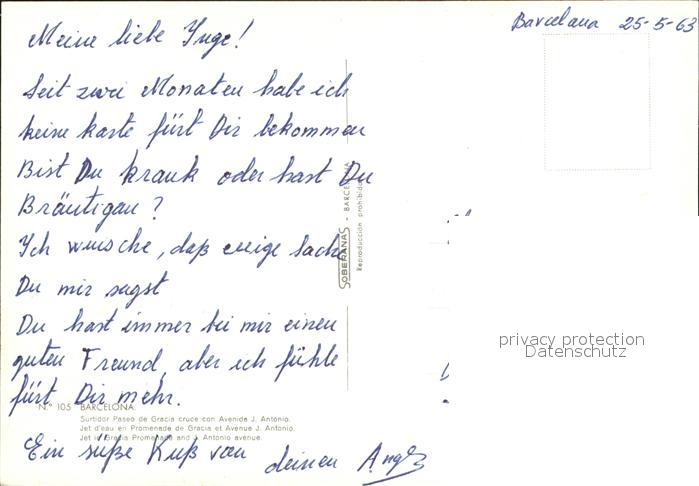 Barcelona 25-5-63
Meine liebe Inge!
Seit zwei Monaten habe ich
keine karte fürt Dir bekommen
Bist Du krank oder hast Du
Bräutigan?
Ich wusche, daß einige Sache
Du mir sagst
Du hast immer bei mir einen
guten Freund, aber ich fühle
fürt Dir mehr.
Ein süße Kuß von deinen
SOBERANAS - BARCELONA
Reproducción prohibida
N.º 105 BARCELONA.
Surtidor Paseo de Gracia cruce con Avenida J. Antonio.
Jet d'eau en Promenade de Gracia et Avenue J. Antonio.
Jet in Gracia Promenade and J. Antonio avenue.
privacy protection
Datenschutz